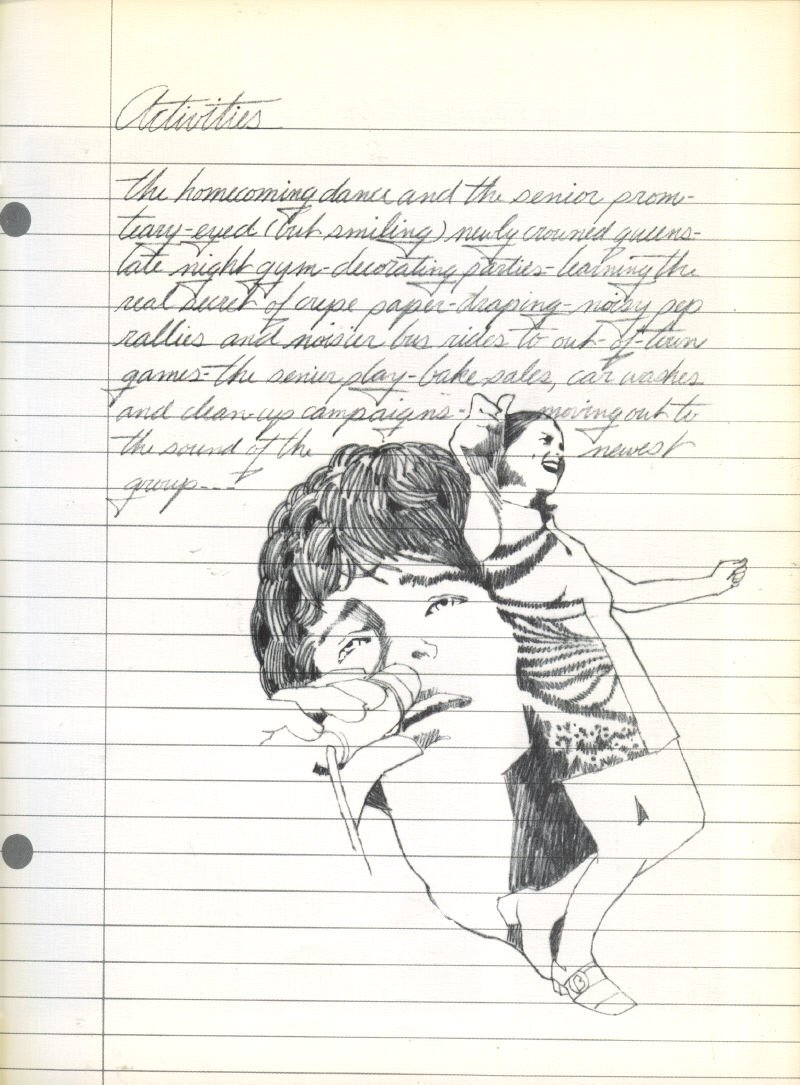 Activities
the homecoming dance and the senior prom-
teary-eyed (but smiling) newly crowned queens-
late night gym-decorating parties-learning the
real secret of crepe paper-draping-noisy pep
rallies and noisier bus rides to out-of-town
games-the senior play-bake sales, car washes
and clean-up campaigns- moving out to
the sound of the newest
group---